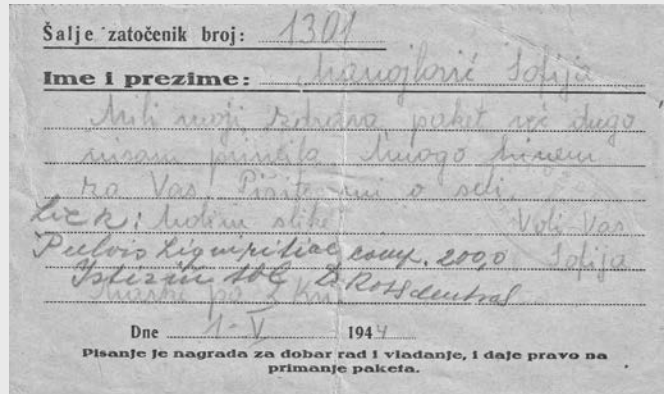 Šalje zatočenik broj: 1301
Ime i prezime: Manojlović Sofija
Mili moji, zdrava, paket već dugo
nisam primila. Mnogo brinem
za Vas. Pišite mi o sebi.
Molim slike Voli Vas
Pulvis Liquiritiae comp. 200,0 Sofija
Istizin tbl
Dne 1-V 1944
Pisanje je nagrada za dobar rad i vladanje, i daje pravo na
primanje paketa.